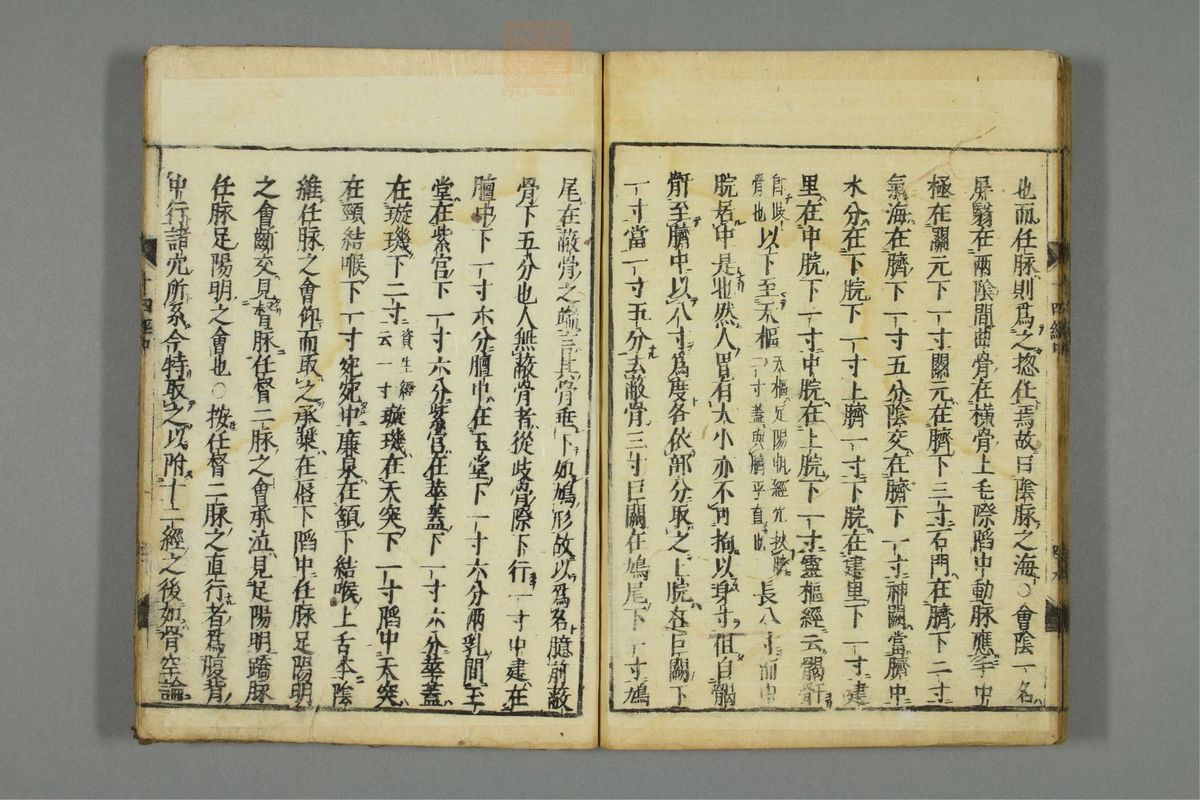 也而任脉則爲之揔任焉故曰陰脉之海○會陰一名
屏翳在兩陰間曲骨在橫骨上毛際陷中動脉應手中
極在關元下一寸關元在臍下三寸石門在臍下二寸
氣海在臍下一寸五分陰交在臍下一寸神闕當臍中
水分在下脘下一寸上臍一寸下脘在建里下一寸建
里在中脘下一寸中脘在上脘下一寸靈樞經云𩩲骬
骨也以下至天樞天樞足陽明經穴挾臍二寸蓋與臍平直也長八寸而中
脘居中是也然人胃有大小亦不可拘以身寸但自𩩲
骬至臍中以八寸爲度各依部分取之上脘在巨闕下
一寸當一寸五分去蔽骨三寸巨闕在鳩尾下一寸鳩
尾在蔽骨之端言其骨垂下如鳩形故以爲名臆前蔽
骨下五分也人無蔽骨者從歧骨際下行一寸中庭在
膻中下一寸六分膻中在玉堂下一寸六分兩乳間玉
堂在紫宮下一寸六分紫宮在華蓋下一寸六分華蓋
在璇璣下二寸資生經云一寸璇璣在天突下一寸陷中天突
在頸結喉下一寸宛宛中廉泉在頷下結喉上舌本陰
維任脉之會仰而取之承漿在唇下陷中任脉足陽明
之會齗交見督脉任督二脉之會承泣見足陽明蹻脉
任脉足陽明之會也○按任督二脉之直行者爲腹背
中行諸穴所系今特取之以附十二經之後如骨空論
十四經中